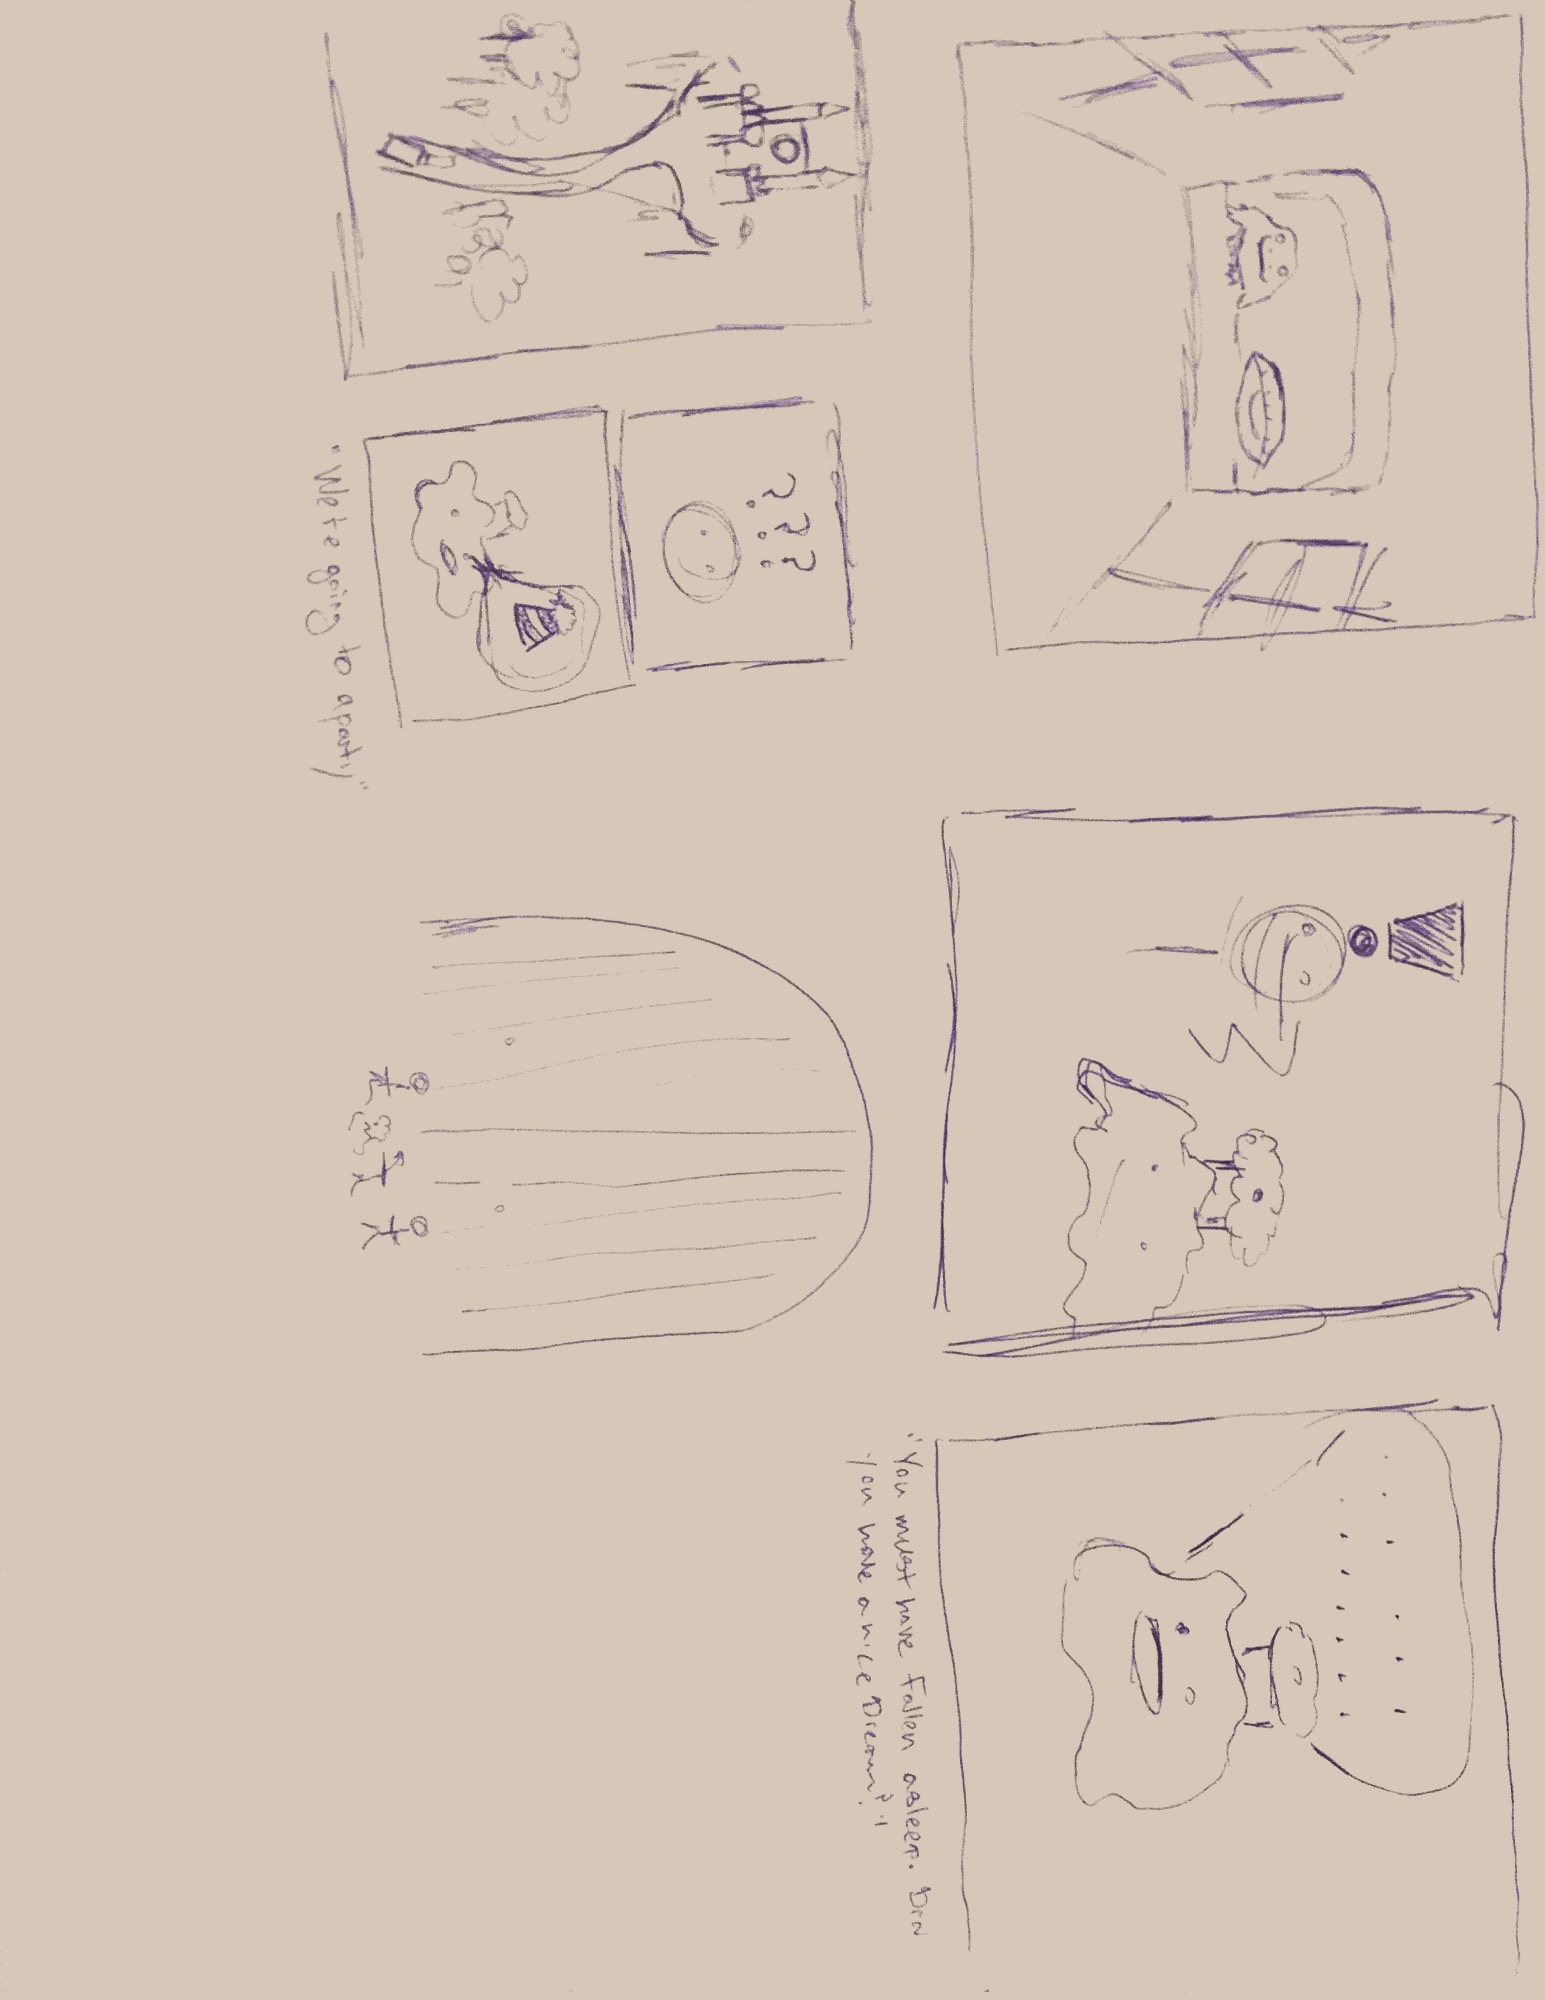 "You must have Fallen asleep. Did
you have a nice Dream?"
? ? ?
"We're going to a party"